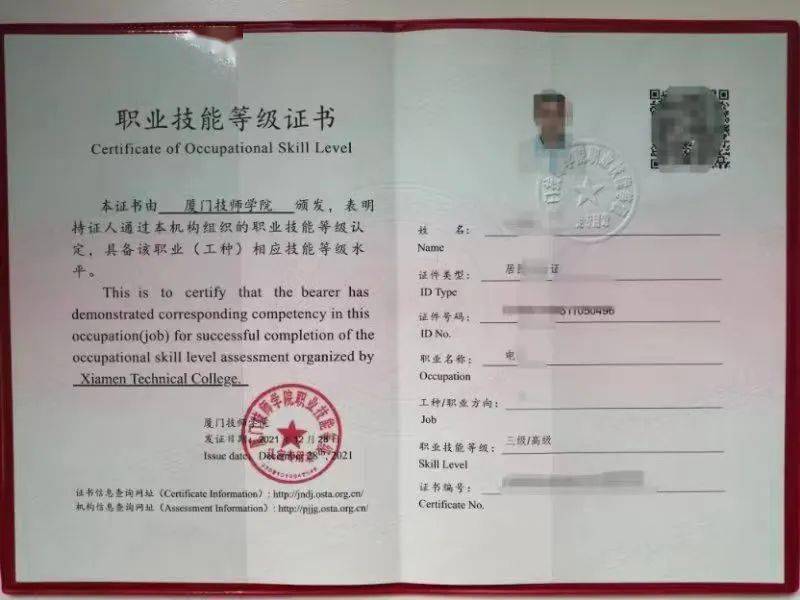 职业技能等级证书
Certificate of Occupational Skill Level
本证书由 厦门技师学院 颁发，表明
持证人通过本机构组织的职业技能等级认
定，具备该职业（工种）相应技能等级水
平。
This is to certify that the bearer has
demonstrated corresponding competency in this
occupation(job) for successful completion of the
occupational skill level assessment organized by
Xiamen Technical College.
厦门技师学院
发证日期：2021年12月28日
Issue date： December 28th, 2021
证书信息查询网址（Certificate Information）: http://jndj.osta.org.cn/
机构信息查询网址（Assessment Information）: http://pjjg.osta.org.cn/
姓 名：
Name
证件类型： 居 证
ID Type
证件号码：
ID No.
职业名称： 电
Occupation
工种/职业方向：
Job
职业技能等级： 三级/高级
Skill Level
证书编号：
Certificate No.